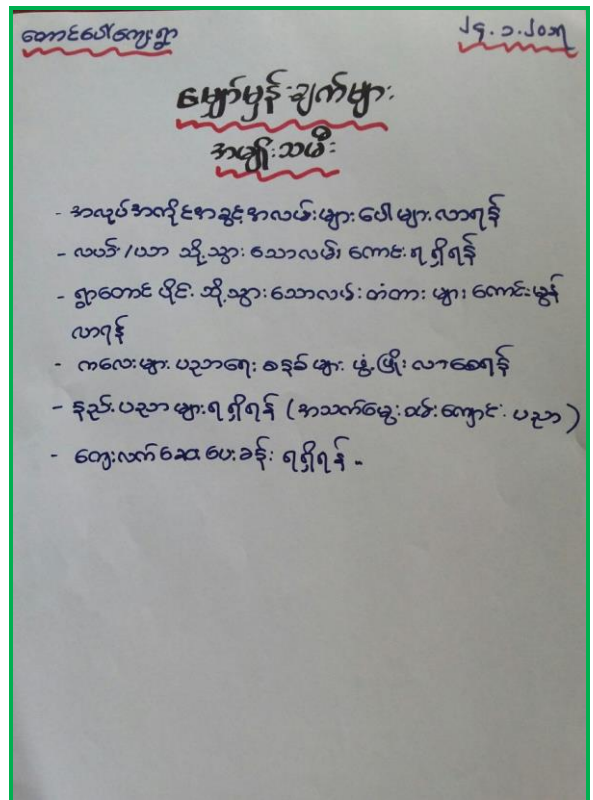 တောင်ပေါ်ကျေးရွာ
၂၄.၁.၂၀၁၅
မျှော်မှန်းချက်များ
အမျိုးသမီး
- အလုပ်အကိုင်အခွင့်အလမ်းများပေါများလာရန်
- လယ်/ယာ သို့သွားသောလမ်း ကောင်းရရှိရန်
- ရွာတောင်ပိုင်းသို့သွားသောလမ်းတံတားများ ကောင်းမွန်
လာရန်
- ကလေးများပညာရေးစနစ်များ ဖွံ့ဖြိုးလာစေရန်
- နည်းပညာများရရှိရန် (အသက်မွေးဝမ်းကျောင်းပညာ)
- ကျေးလက်ဆေးပေးခန်း ရရှိရန် -